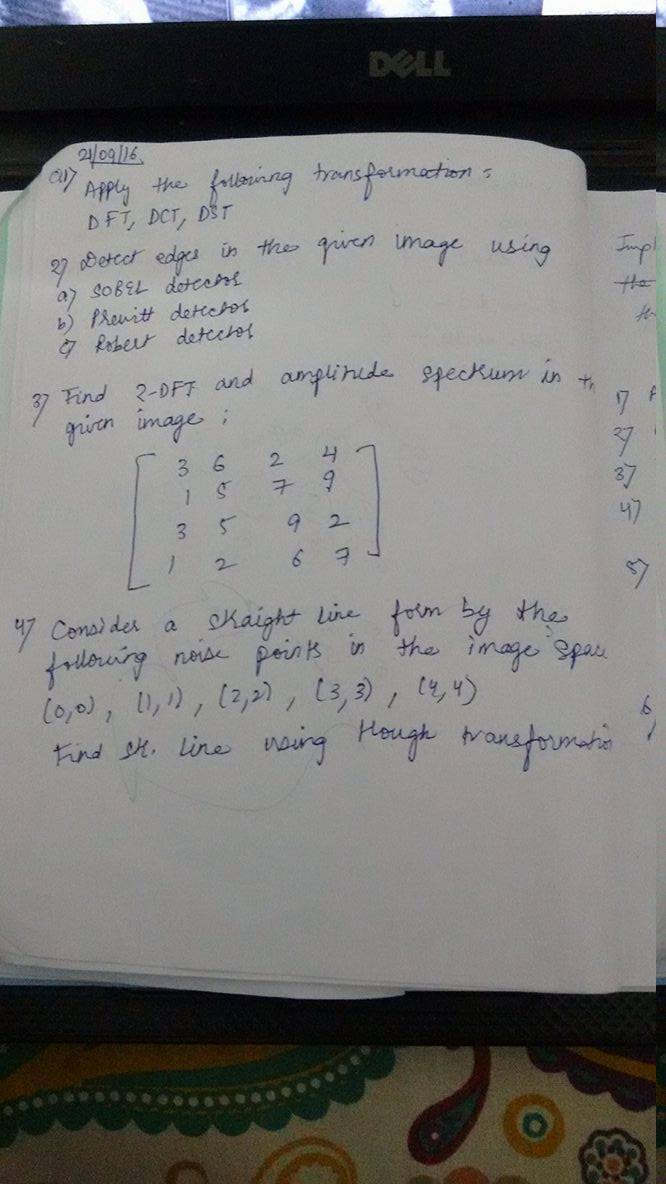 DELL
21/09/16
Q1) Apply the following transformation:
DFT, DCT, DST
2) Detect edges in the given image using
a) SOBEL detector
b) Prewitt detector
c) Robert detector
3) Find 2-DFT and amplitude spectrum in
given image :
3 6 2 4
1 5 7 9
3 5 9 2
1 2 6 7
4) Consider a straight line form by the
following noise points in the image space
(0,0), (1,1), (2,2), (3,3), (4,4)
Find St. line using Hough transformation
1)
2)
3)
4)
5)
6)